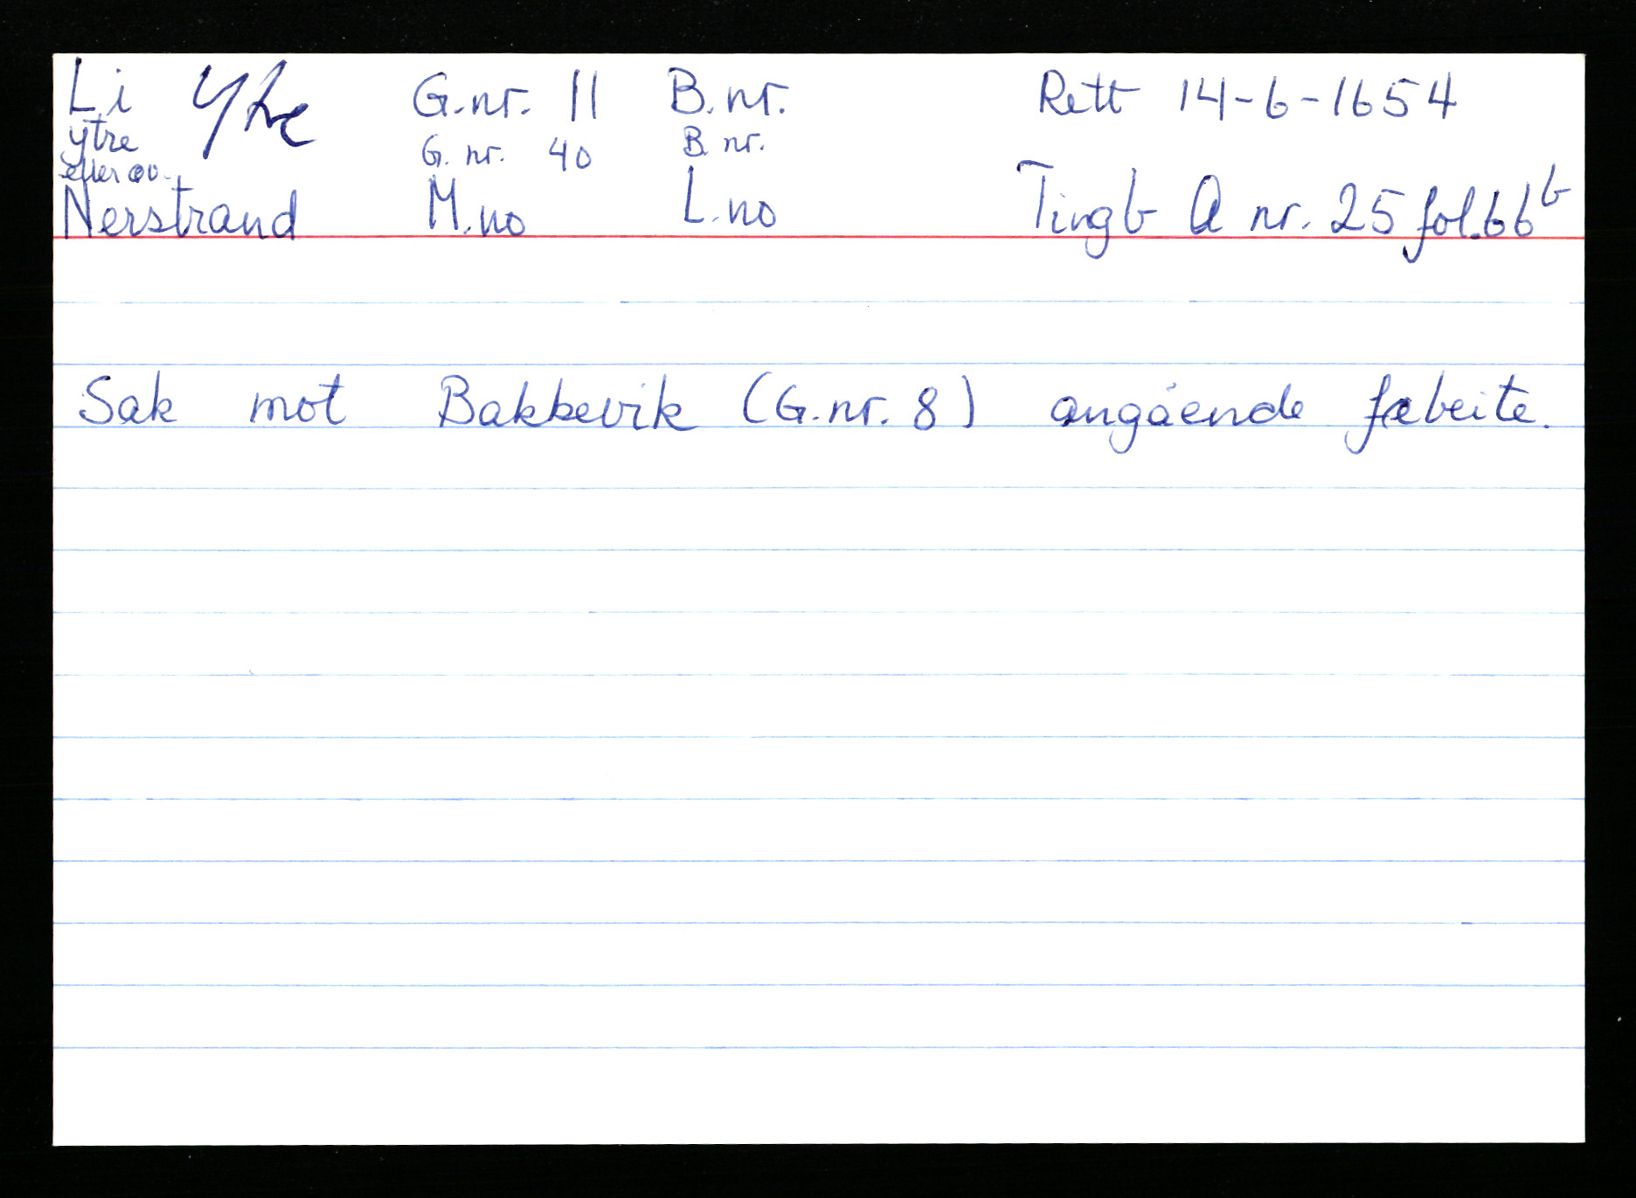 Li Ytre G.nr. 11 B.nr. Rett 14-6-1654
ytre G. nr. 40 B. nr.
Nerstrand M.no L.no Tingb A nr. 25 fol.66b
Sak mot Bakkevik (G.nr. 8) angående fæbeite.